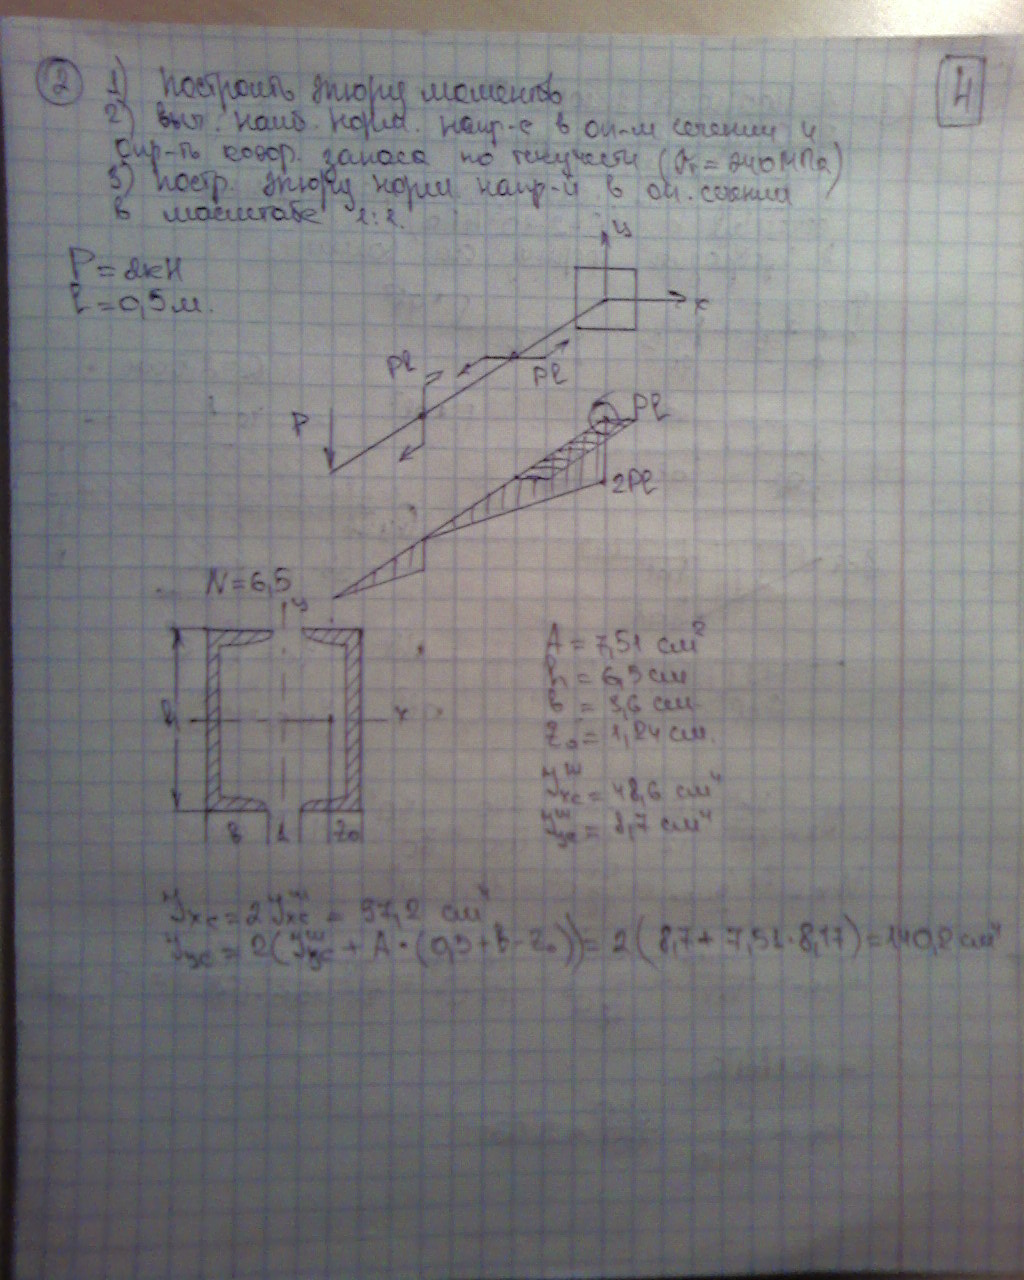 2 1) Построить эпюру моментов 4
2) выч. наиб. норм. напр-е в оп-м сечении и
опр-ть коэф. запаса по текучести (σт = 240 МПа)
3) постр. эпюру норм напр-й в оп. сечении
в масштабе 1:1.
P = 2кН
ℓ = 0,5 м.
y
x
Pℓ
Pℓ
P
Pℓ
2Pℓ
N = 6,5
y
A = 7,51 см²
h = 6,5 см
b = 3,6 см
z₀ = 1,24 см.
h
x
Jxcᴵᴵᴵ = 48,6 см⁴
Jycᴵᴵᴵ = 8,7 см⁴
b 1 z₀
Jxc = 2Jxcᴵᴵᴵ = 97,2 см⁴
Jyc = 2(Jycᴵᴵᴵ + A·(0,5+b-z₀)) = 2(8,7 + 7,51·8,17) = 140,2 см⁴